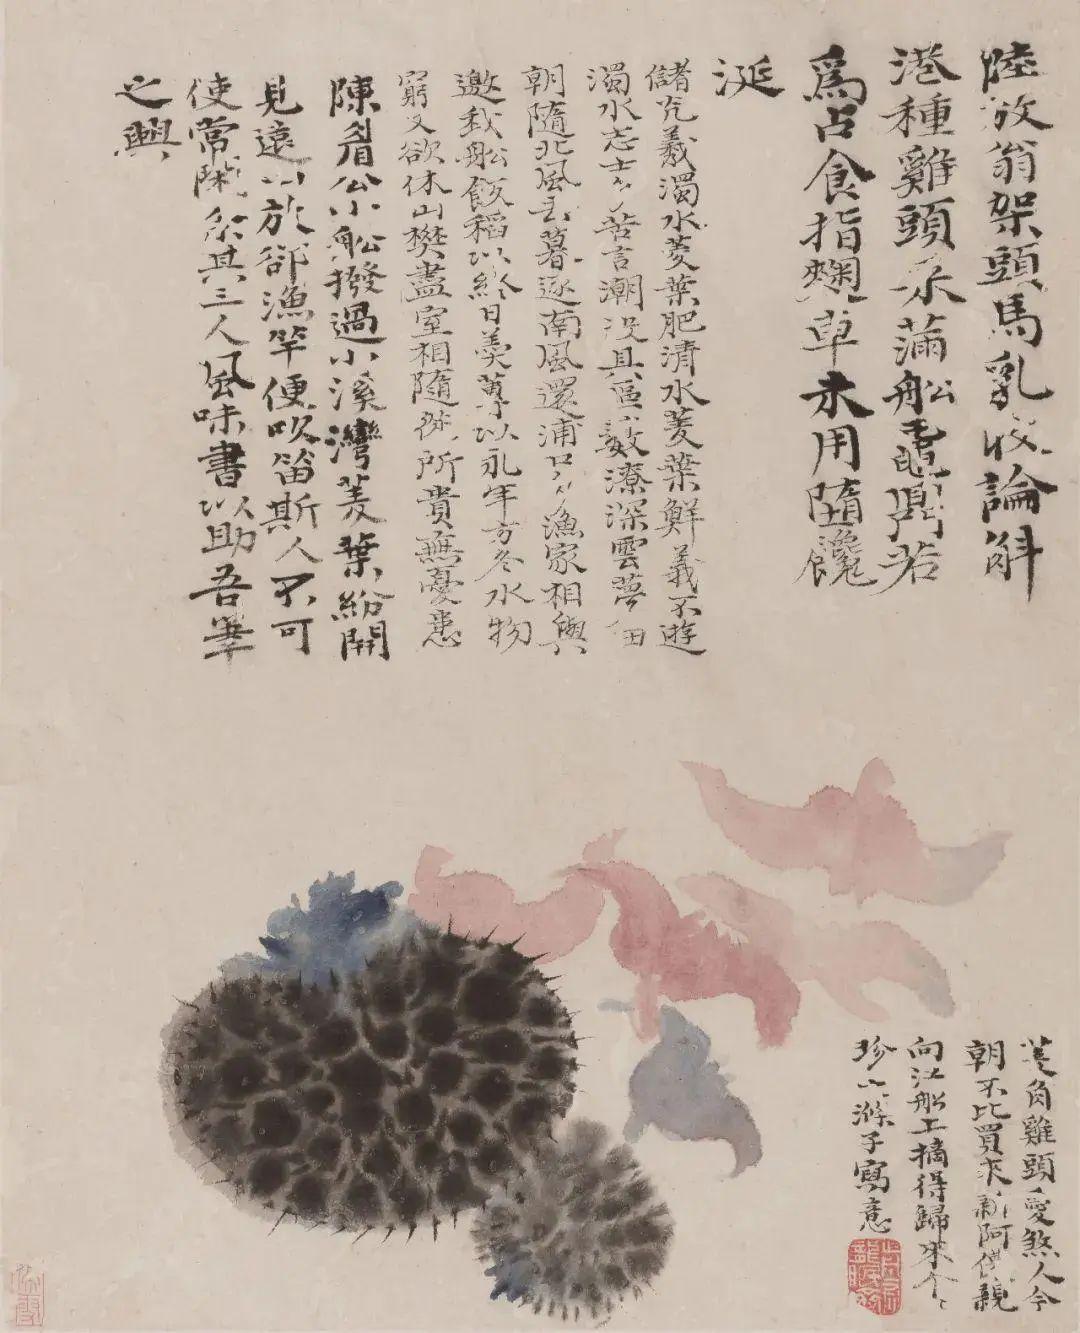 陸放翁架頭馬乳收論斛
港種雞頭采滿船黿鼎若
爲占食指麴草未用墮饞
涎
儲光羲濁水菱葉肥清水菱葉鮮義不游
濁水志士多苦言潮沒具區藪潦深雲夢田
朝隨北風去暮逐南風還浦口多漁家相與
邀我船飯稻以終日羹蓴以永年方冬水物
窮又欲休山樊盡室相隨從所貴無憂患
陳眉公小船撥過小溪灣菱葉紛開
見遠山放卻漁竿便吹笛斯人不可
使常閑余其三人風味書以助吾筆
之興
菱角雞頭愛煞人今
朝不比買來新阿儂親
向江船上摘得歸來个、
珍大滌子寫意